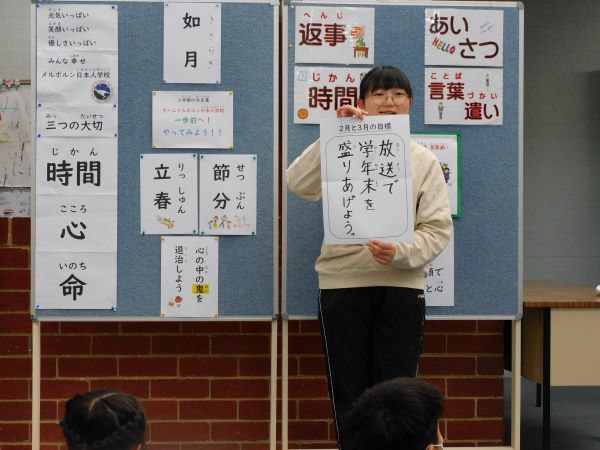 元気いっぱい
笑顔いっぱい
優しさいっぱい
みんな幸せ
メルボルン日本人学校
みっ たいせつ
三つの大切
じかん
時間
こころ
心
いのち
命
きさらぎ
如月
3学期の合言葉
チームメルボルン日本人学校
一歩前へ!
やってみよう!!
りっしゅん
立春
せつ ぶん
節分
心の中の鬼を
退治しよう
へんじ
返事
じかん
時間
あい
さつ
HELLO
ことば
言葉
づか
遣い
2月と3月の目標
放送で
学年末を
盛りあげよう。